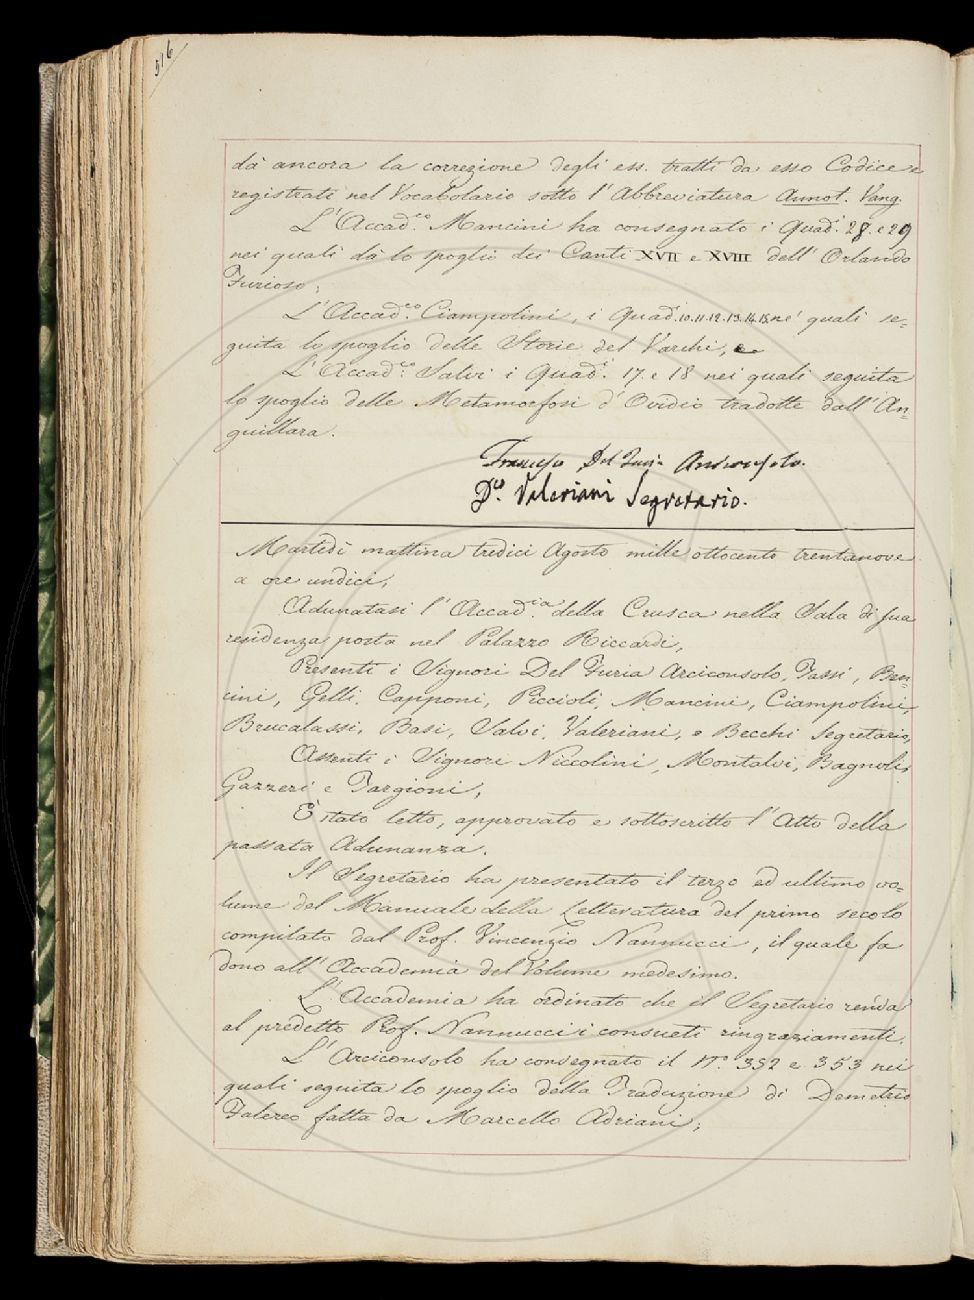 516
dà ancora la correzione degli ess. tratti da esso Codice e
registrati nel Vocabolario sotto l'Abbreviatura Annot. Vang.
L'Accad.co Mancini ha consegnato i Quad.i 28. e 29
nei quali dà lo spoglio dei Canti XVII e XVIII dell'Orlando
Furioso;
L'Accad.co Ciampolini, i Quad. 10.11.12.13.14.15. ne' quali se=
guita lo spoglio delle Storie del Varchi, e
L'Accad.co Salvi i Quad.i 17. e 18 nei quali seguita
lo spoglio delle Metamorfosi d'Ovidio tradotte dall'An=
guillara.
Francesco Del Furia Arciconsolo.
Valeriani Segretario.
Martedì mattina tredici Agosto mille ottocento trentanove
a ore undici,
Adunatasi l'Accad.ia della Crusca nella Sala di sua
residenza posta nel Palazzo Riccardi,
Presenti i Signori Del Furia Arciconsolo, Tassi, Ben=
cini, Gelli, Capponi, Piccioli, Mancini, Ciampolini,
Brucalassi, Basi, Salvi, Valeriani, e Becchi Segretario,
Assenti i Signori Niccolini, Montalvi, Bagnoli,
Gazzeri e Targioni,
È stato letto, approvato e sottoscritto l'Atto della
passata Adunanza.
Il Segretario ha presentato il terzo ed ultimo vo=
lume del Manuale della Letteratura del primo secolo
compilato dal Prof. Vincenzio Nannucci, il quale fa
dono all'Accademia del Volume medesimo.
L'Accademia ha ordinato che il Segretario renda
al predetto Prof. Nannucci i consueti ringraziamenti.
L'Arciconsolo ha consegnato il N.o 352 e 353 nei
quali seguita lo spoglio della Traduzione di Demetrio
Falereo fatta da Marcello Adriani;